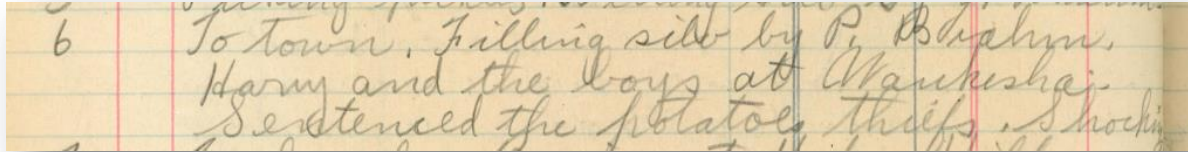 6 To town. Filling silo by P. Brahm.
Harry and the boys at Waukesha.
Sentenced the potatoe thiefs. Shockin